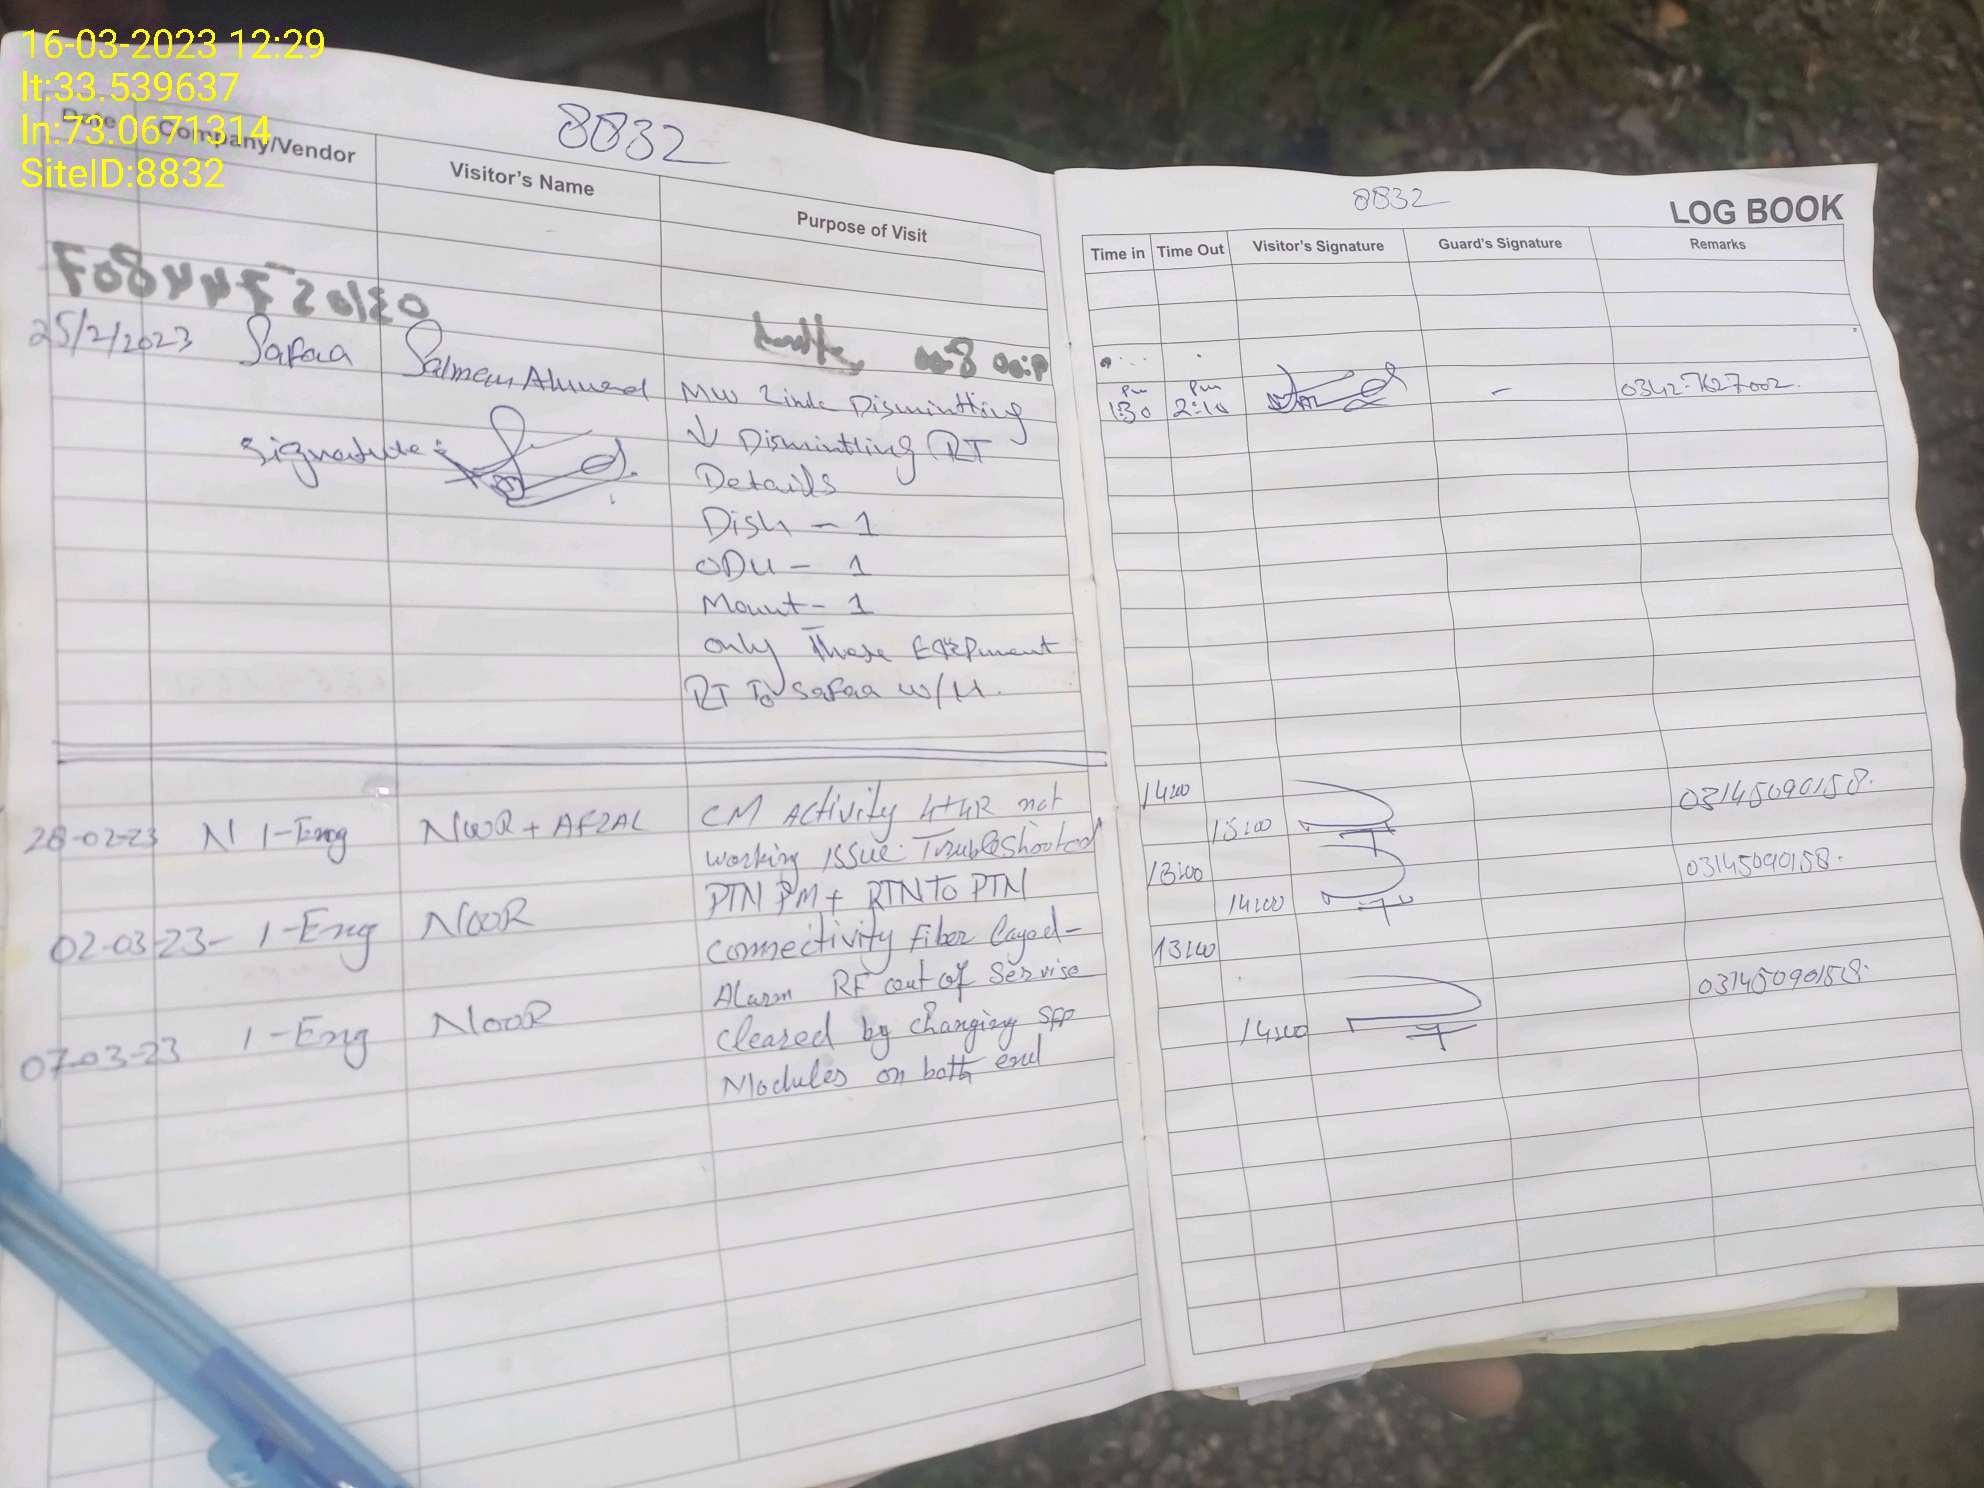 16-03-2023 12:29
lt:33.539637
ln:73.0671314
SiteID:8832
8832
Date Company/Vendor Visitor's Name Purpose of Visit
25/2/2023 Safaa Salman Ahmed MW Link Dismintting
Signature: ↓ Dismintling RT
Details
Dish - 1
ODU - 1
Mount - 1
only These Eqipment
RT To Safaa w/H.
28-02-23 N 1-Eng NOOR + AFZAL CM Activity 4+4R not
working issue Troubleshooted
02-03-23- 1-Eng NOOR PTN PM + RTN TO PTN
connectivity Fiber layed-
07-03-23 1-Eng NOOR Alarm RF out of Servise
cleared by changing SFP
Modules on both end
8832
LOG BOOK
Time in Time Out Visitor's Signature Guard's Signature Remarks
pm pm
1:30 2:10 - 0342-7627002.
14:00 03145090158.
15:00
13:00 03145090158.
14:00
13:00
03145090158.
14:00